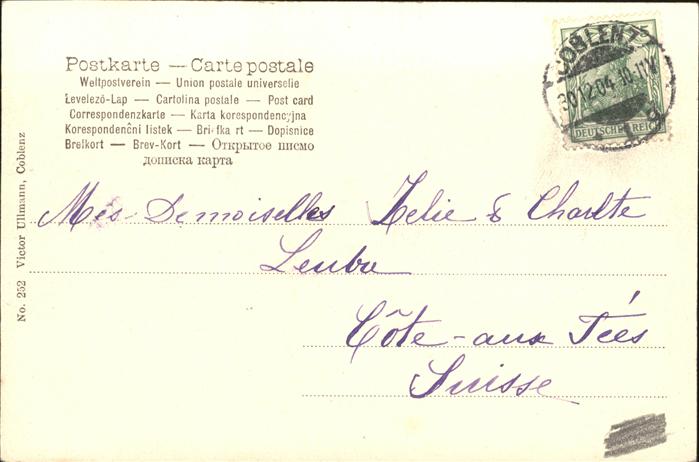 Postkarte — Carte postale
Weltpostverein — Union postale universelle
Levelező-Lap — Cartolina postale — Post card
Correspondenzkarte — Karta korespondencyjna
Korespondenční listek — Briefkart — Dopisnice
Brefkort — Brev-Kort — Открытое писмо
дописка карта
COBLENZ
30.12.04.10-11V.
DEUTSCHES REICH
No. 252 Victor Ullmann, Coblenz
Mes-Demoiselles Zelie & Charlte
Leuba
Côte-aux Fées
Suisse